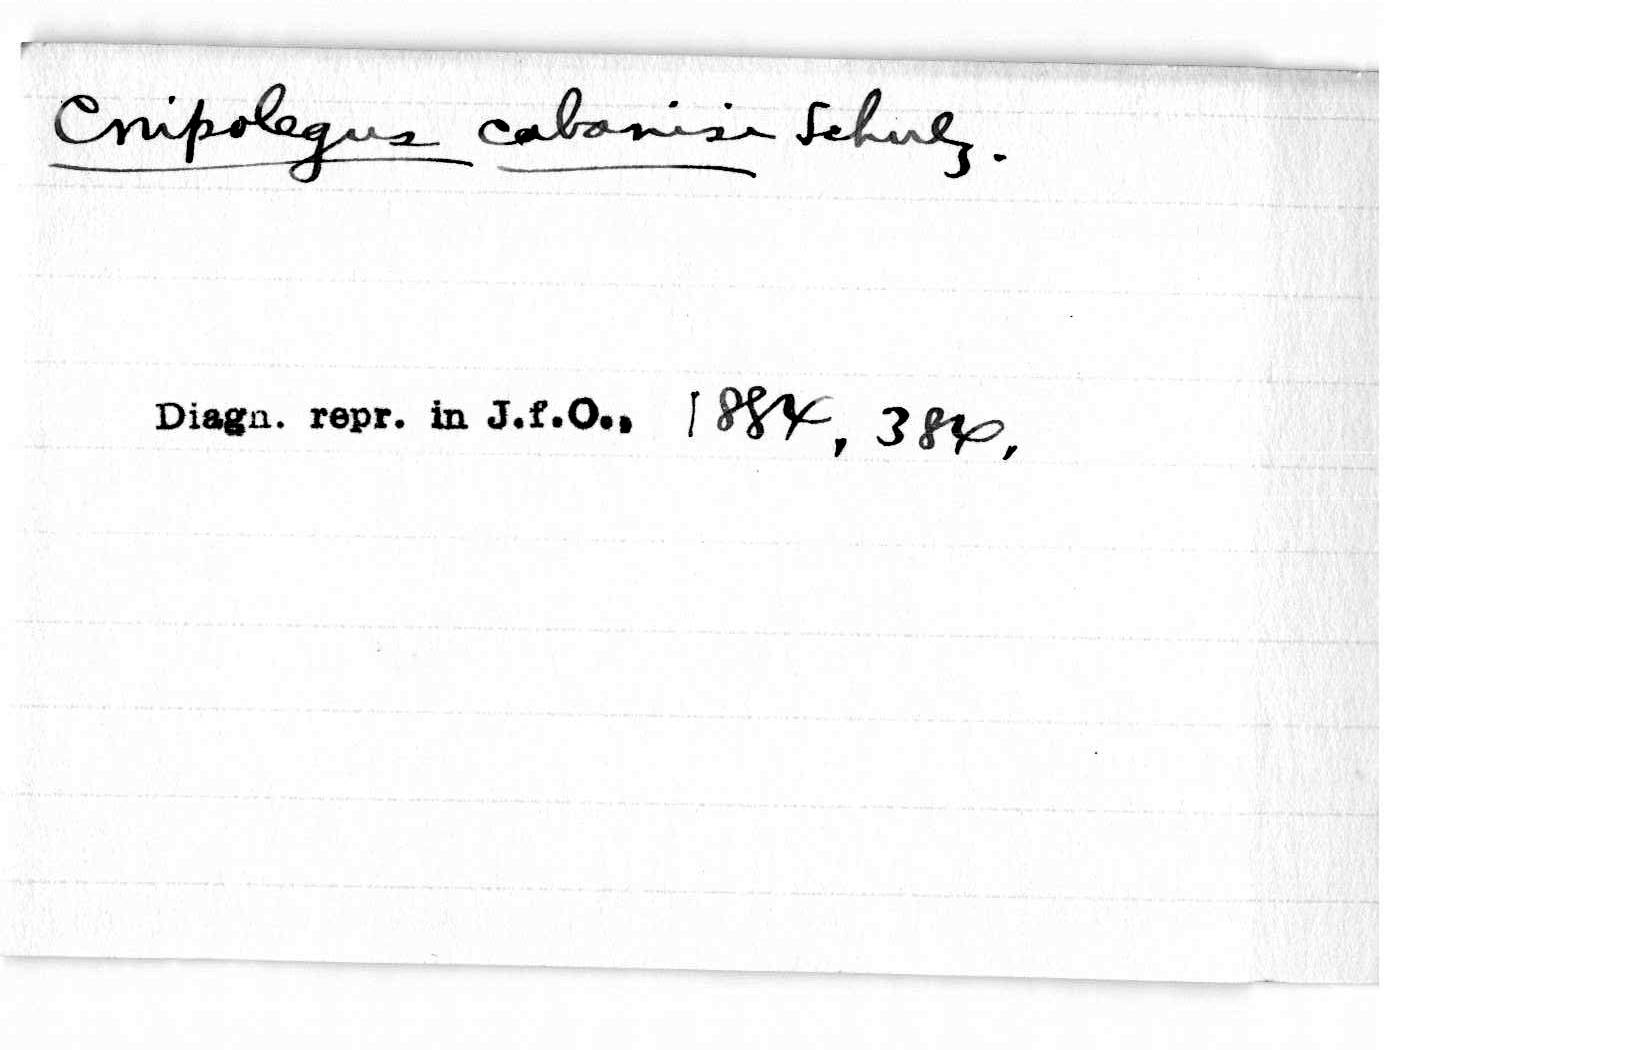 Cnipolegus cabanisi Schulz.
Diagn. repr. in J.f.O., 1884, 384,